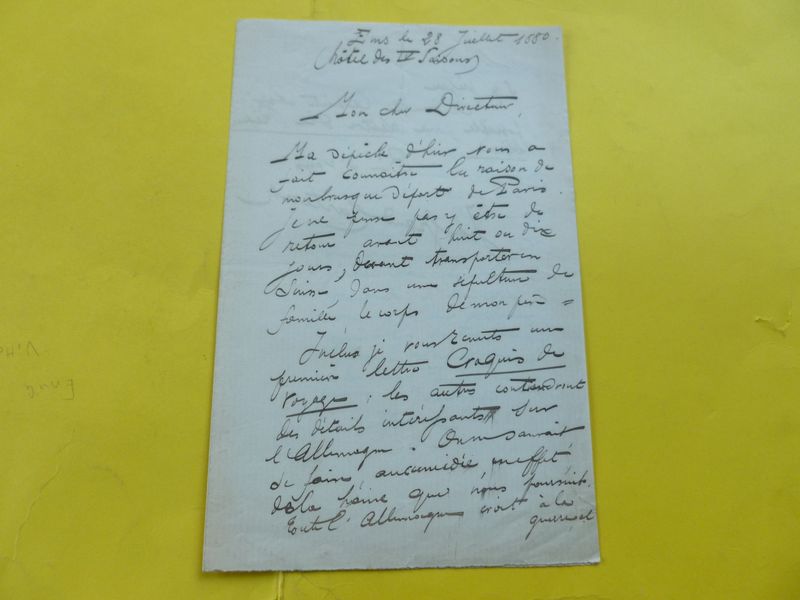 Ems le 28 Juillet 1880.
(hôtel des IV Saisons)
Mon cher Directeur,
Ma dépêche d'hier vous a
fait connaître la raison de
mon brusque départ de Paris.
je ne pense pas y être de
retour avant huit ou dix
jours, devant transporter en
Suisse, dans une sépulture de
famille le corps de mon père =
Inclus je vous remets une
première lettre Croquis de
voyage ; les autres contiendront
des détails intéressants sur
l'Allemagne. On ne saurait
se faire aucune idée en effet
de la haine qui nous poursuit.
Toute l'Allemagne croit à la
guerre, et